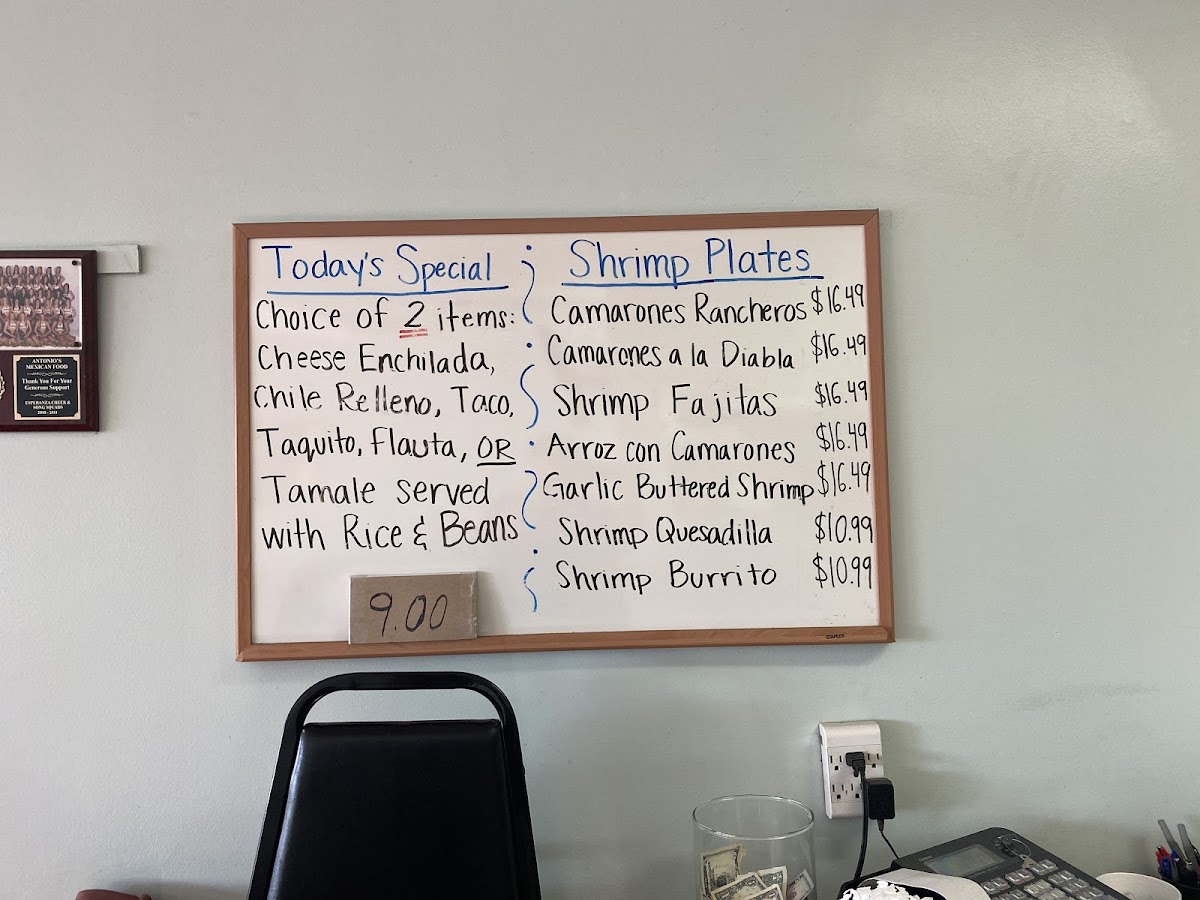 Today's Special
Choice of 2 items:
Cheese Enchilada,
Chile Relleno, Taco,
Taquito, Flauta, OR
Tamale served
with Rice & Beans
9.00
Shrimp Plates
Camarones Rancheros $16.49
Camarones a la Diabla $16.49
Shrimp Fajitas $16.49
Arroz con Camarones $16.49
Garlic Buttered Shrimp $16.49
Shrimp Quesadilla $10.99
Shrimp Burrito $10.99
STAPLES
ANTONIO'S
MEXICAN FOOD
Thank You For Your
Generous Support
ESPERANZA CHEER &
SONG SQUADS